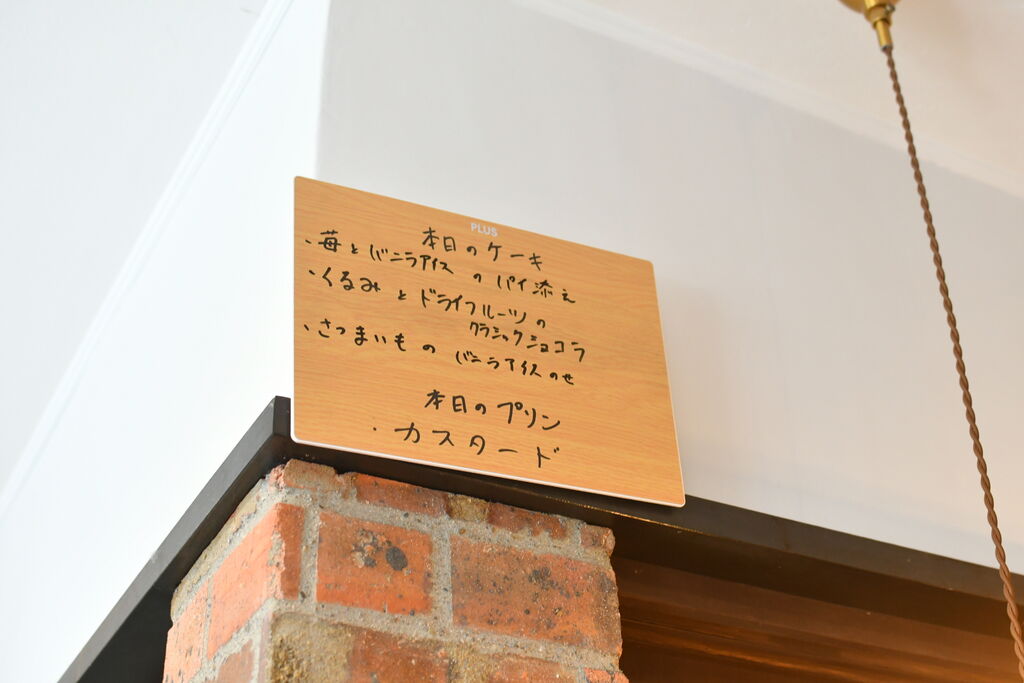 PLUS
本日のケーキ
・苺とバニラアイスのパイ添え
・くるみとドライフルーツの
クラシックショコラ
・さつまいもの バニラアイスのせ
本日のプリン
・カスタード